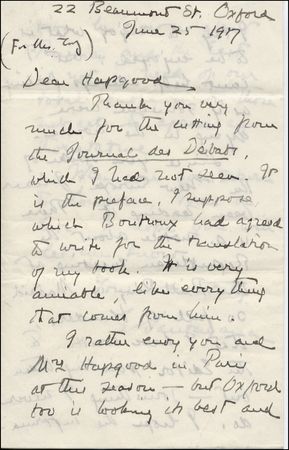 22 Beaumont St. Oxford
June 25 1917
(For Mr.
Dear Hapgood
Thank you very
much for the cutting from
the Journal des Débats,
which I had not seen. It
is the preface, I suppose
which Boutroux had agreed
to write for the translation
of my book. It is very
amiable, like everything
that comes from him.
I rather envy you and
Mrs Hapgood in Paris
at this season — but Oxford
too is looking its best and